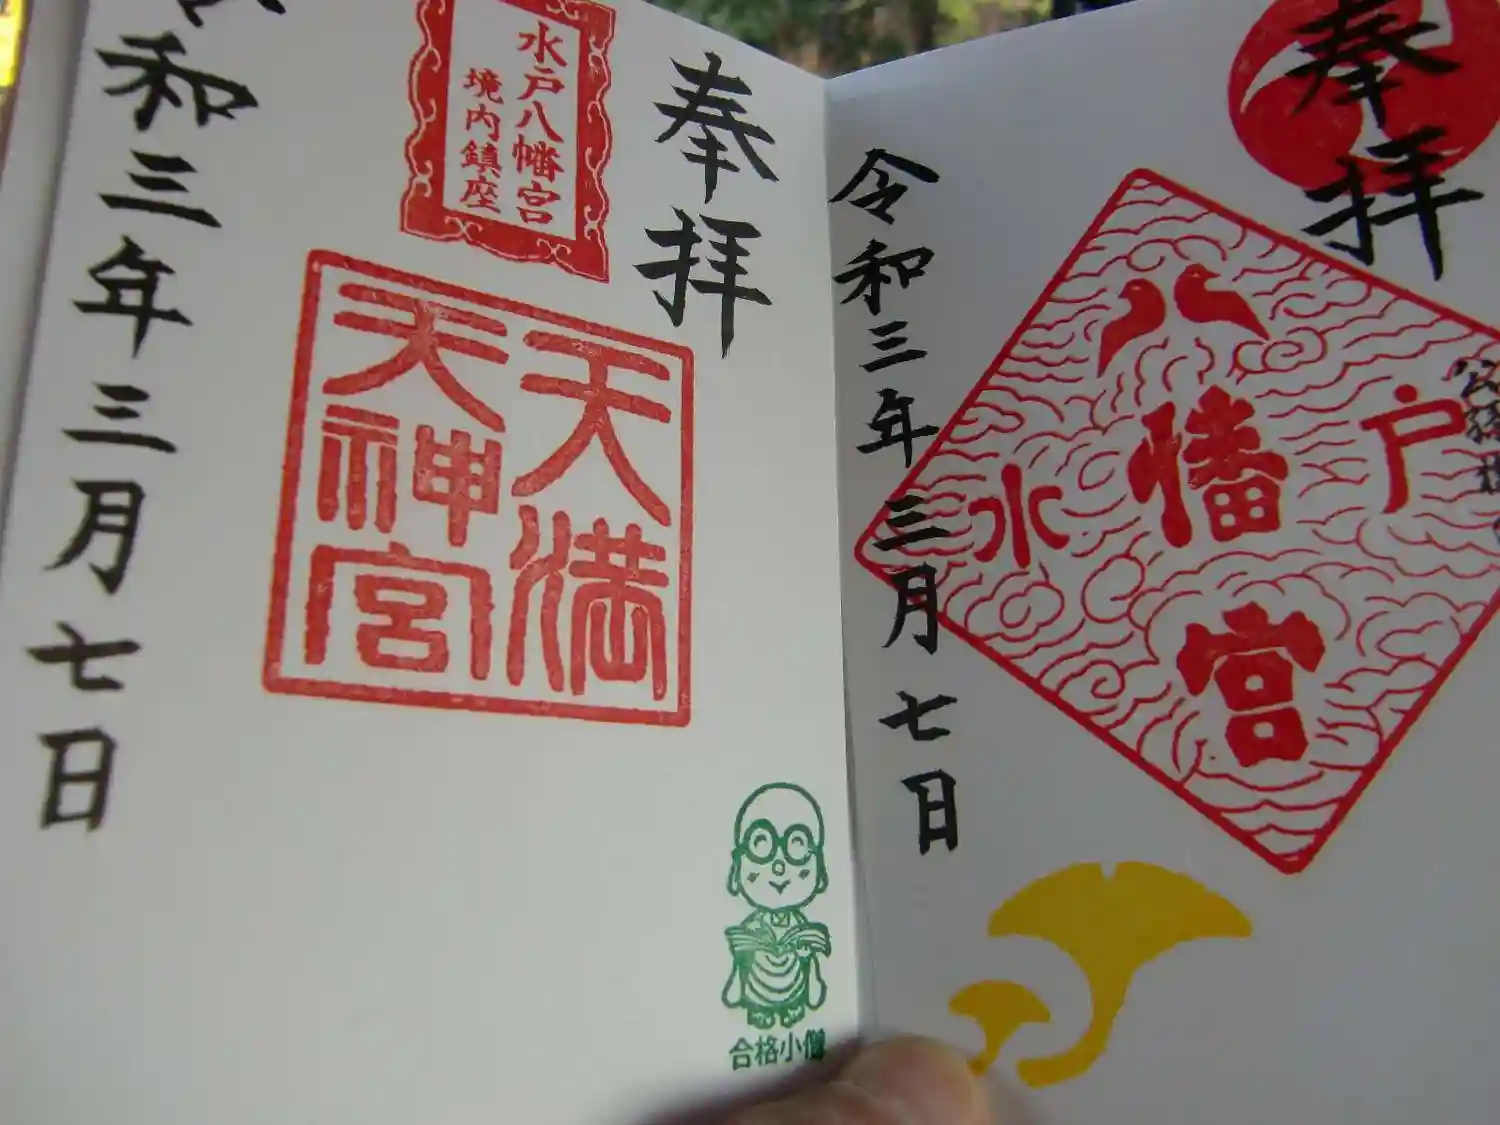 奉拝
八幡宮
水戸
令和三年三月七日
奉拝
水戸八幡宮
境内鎮座
天満
天神宮
令和三年三月七日
合格小僧